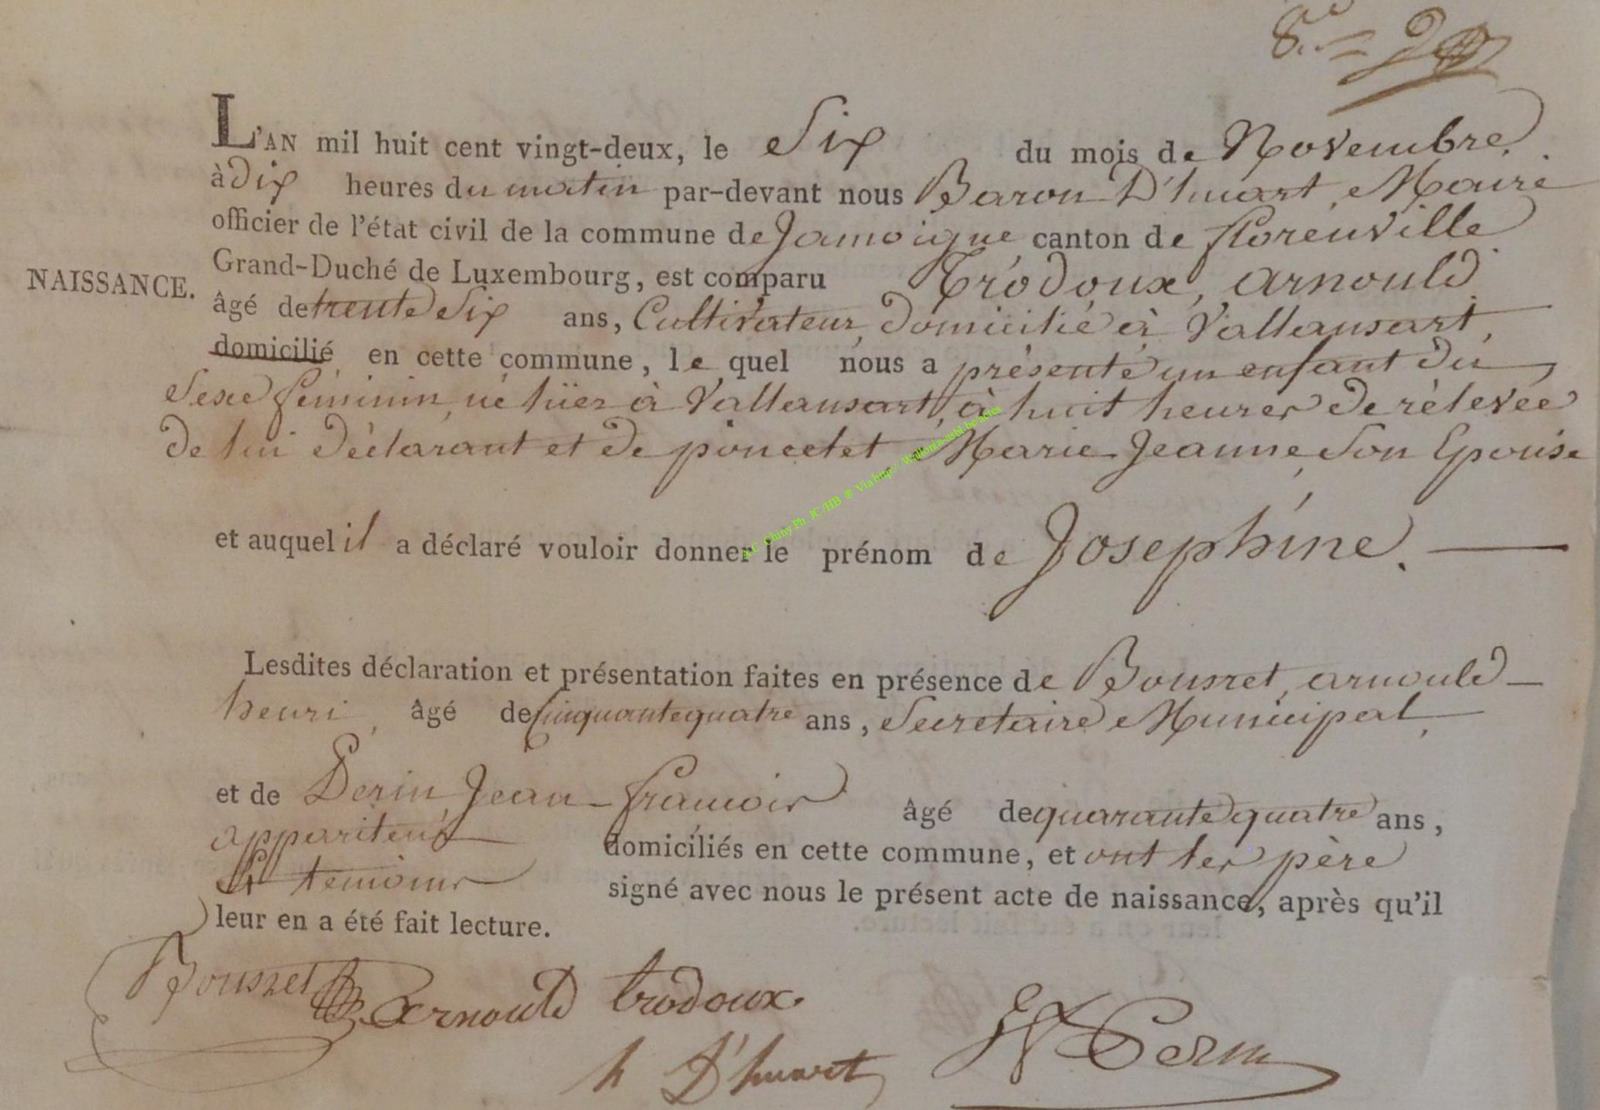 L'AN mil huit cent vingt-deux, le Six du mois de Novembre,
à dix heures du matin par-devant nous Baron D'huart, Maire
officier de l'état civil de la commune de Jamoigne canton de florenville
Grand-Duché de Luxembourg, est comparu Trodoux, arnould
NAISSANCE.
âgé de trente Six ans, Cultivateur, domicilié à Vallansart,
domicilié en cette commune, le quel nous a présenté un enfant du
Sexe féminin, né hier à Vallansart, à huit heures de rélevée
de lui déclarant et de poncelet, Marie Jeanne, Son Epouse
et auquel il a déclaré vouloir donner le prénom de Josephine.
Lesdites déclaration et présentation faites en présence de Bousret, arnould
henri, âgé de Cinquante quatre ans, Secretaire Municipal,
et de Perin, Jean francois âgé de quarante quatre ans,
appariteur domiciliés en cette commune, et ont les père
et temoins signé avec nous le présent acte de naissance, après qu'il
leur en a été fait lecture.
Bousret Arnould trodoux.
h D'huart Perin